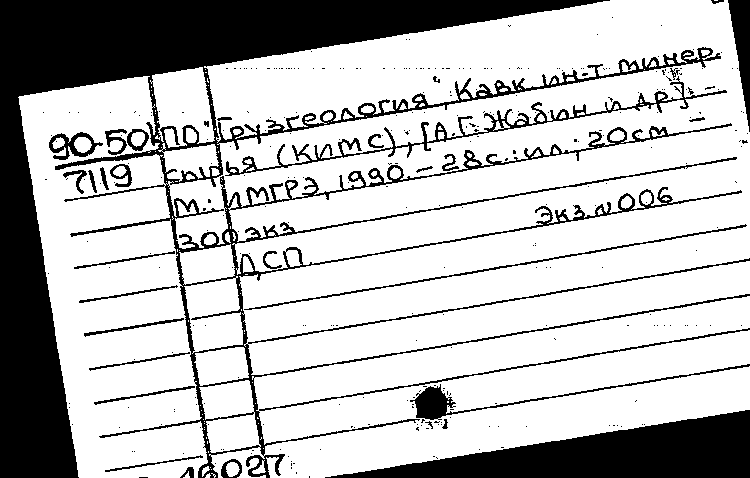 90-50к ПО "Грузгеология", Кавк ин-т минер.
7119 сырья (КИМС); [А.Г. Жабин и др]. -
М.: ИМГРЭ, 1990. - 28с.: ил.; 20см -
300 экз Экз. N 006
ДСП
16027